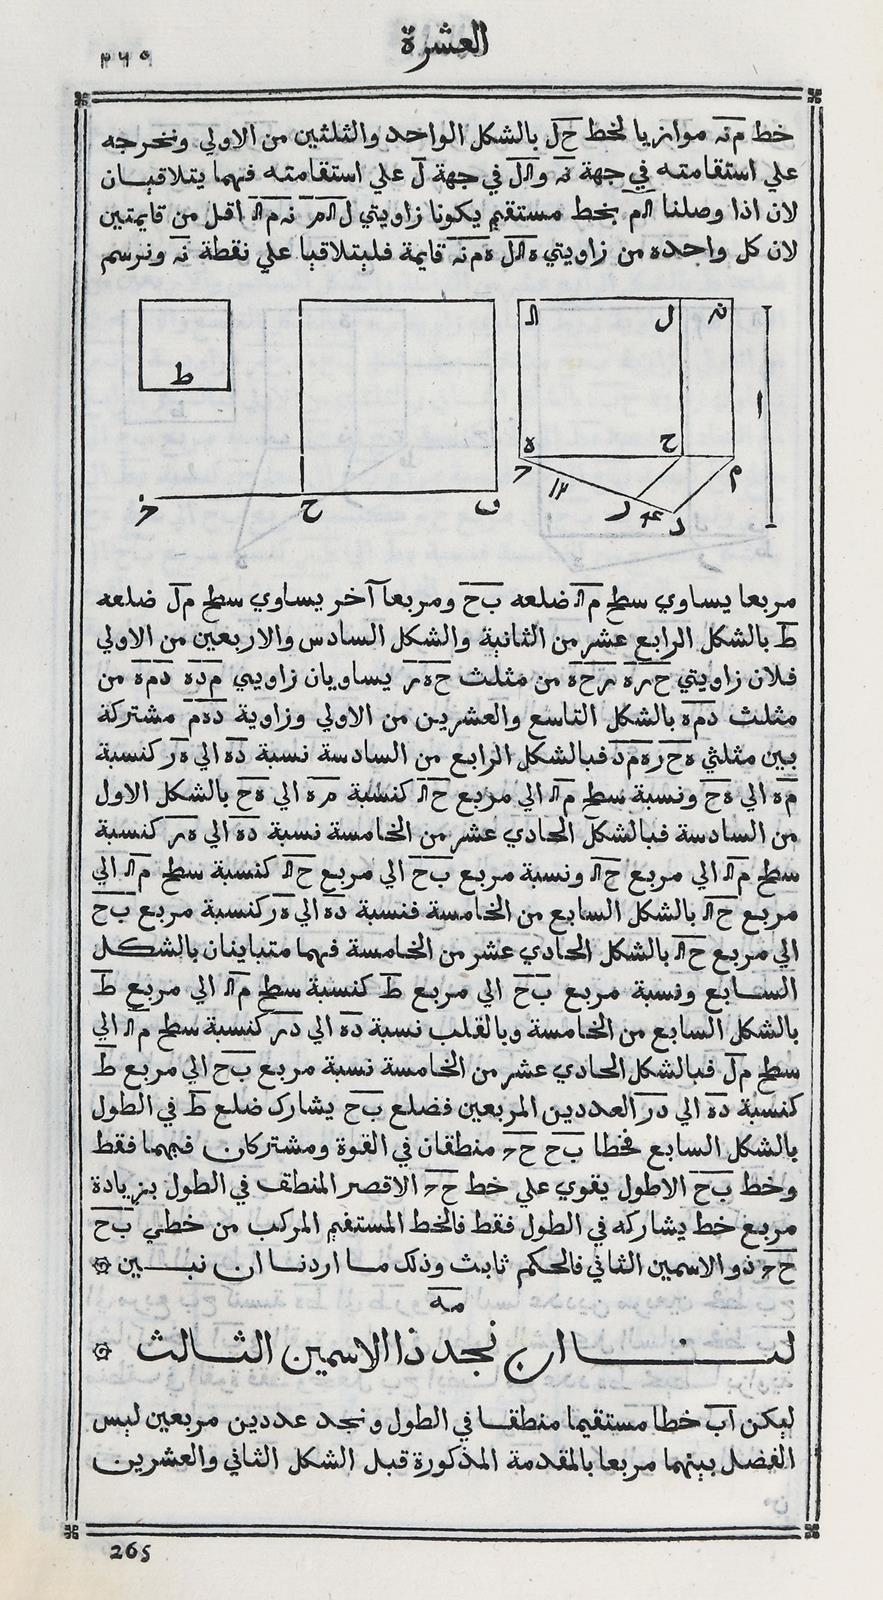 العشرة
٢٦٥
خط م ن موازيا لخط ح ل بالشكل الواحد والثلثين من الاولي ونخرجه
علي استقامته في جهة ن و ال في جهة ل علي استقامته فهما يتلاقيان
لان اذا وصلنا ام بخط مستقيم يكونا زاويتي ل ام ن م ا اقل من قايمتين
لان كل واحده من زاويتي ه ال ه م ن قايمة فليتلاقيا علي نقطة ن ونرسم
ط
ا
ل
ن
ا
ه
ح
م
ح
ب
ر
د
مربعا يساوي سطح م ا ضلعه ب ح ومربعا آخر يساوي سطح م ل ضلعه
ط بالشكل الرابع عشر من الثانية والشكل السادس والاربعين من الاولي
فلان زاويتي ح ر ه ر ح ه من مثلث ح ه ر يساويان زاويتي م د ه د م ه من
مثلث د م ه بالشكل التاسع والعشرين من الاولي وزاوية د ه م مشتركة
بين مثلثي ه ح ر ه م د فبالشكل الرابع من السادسة نسبة د ه الي ه ر كنسبة
م ه الي ه ح ونسبة سطح م ا الي مربع ح ا كنسبة م ه الي ه ح بالشكل الاول
من السادسة فبالشكل الحادي عشر من الخامسة نسبة د ه الي ه ر كنسبة
سطح م ا الي مربع ح ا ونسبة مربع ب ح الي مربع ح ا كنسبة سطح م ا الي
مربع ح ا بالشكل السابع من الخامسة فنسبة د ه الي ه ر كنسبة مربع ب ح
الي مربع ح ا بالشكل الحادي عشر من الخامسة فهما متباينان بالشكل
السابع ونسبة مربع ب ح الي مربع ط كنسبة سطح م ا الي مربع ط
بالشكل السابع من الخامسة وبالقلب نسبة د ه الي د ر كنسبة سطح م ا الي
سطح م ل فبالشكل الحادي عشر من الخامسة نسبة مربع ب ح الي مربع ط
كنسبة د ه الي د ر العددين المربعين فضلع ب ح يشارك ضلع ط في الطول
بالشكل السابع فخطا ب ح ح ج منطقان في القوة ومشتركان فيهما فقط
وخط ب ح الاطول يقوي علي خط ح ج الاقصر المنطق في الطول بزيادة
مربع خط يشاركه في الطول فقط فالخط المستقيم المركب من خطي ب ح
ح ج ذو الاسمين الثاني فالحكم ثابت وذلك ما اردنا ان نبين
مه
لنا ان نجد ذا الاسمين الثالث
ليكن ا ب خطا مستقيما منطقا في الطول ونجد عددين مربعين ليس
الفضل بينهما مربعا بالمقدمة المذكورة قبل الشكل الثاني والعشرين
من
265